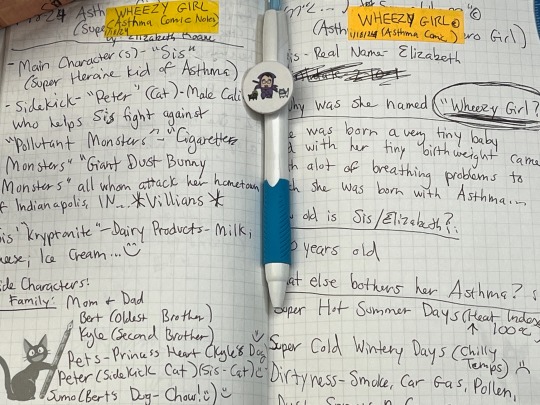 1/8/24 Asth
WHEEZY GIRL
(Asthma Comic Notes)
1/8/24
(Supe
Elizabeth
- Main Character(s) - "Sis"
(Super Heroine kid of Asthma)
- Sidekick - "Peter" (Cat) - Male Cali
who helps Sis fight against
"Pollutant Monsters" - "Cigarettes
Monsters" "Giant Dust Bunny
Monsters" all whom attack her hometown
f Indianapolis, IN... *Villians*
is' "Kryptonite" - Dairy Products - Milk,
eese, Ice Cream...
ide Characters:
Family: Mom & Dad
Bert (Oldest Brother)
Kyle (Second Brother)
Pets - Princess Heart (Kyle's Dog)
Peter (Sidekick Cat) (Sis - Cat)
Sumo (Bert's Dog - Chow!)
WHEEZY GIRL
1/8/24 (Asthma Comic)
(Asth
ero Girl)
is - Real Name - Elizabeth
hy was she named "Wheezy Girl?
e was born a very tiny baby
d with her tiny birthweight came
th alot of breathing problems to
ch she was born with Asthma...
old is Sis/Elizabeth?
0 years old
at else bothers her Asthma?
Super Hot Summer Days (Heat Indexes
100%
Super Cold Wintery Days (Chilly
Temps)
Dirtyness - Smoke, Car Gas, Pollen,